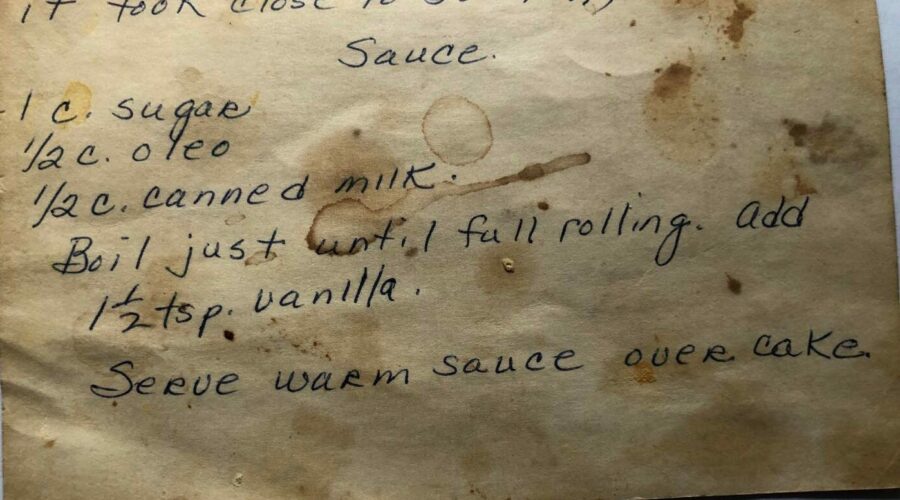 it took close to
Sauce.
1 c. sugar
1/2 c. oleo
1/2 c. canned milk.
Boil just until full rolling. add
1 1/2 tsp. vanilla.
Serve warm sauce over cake.